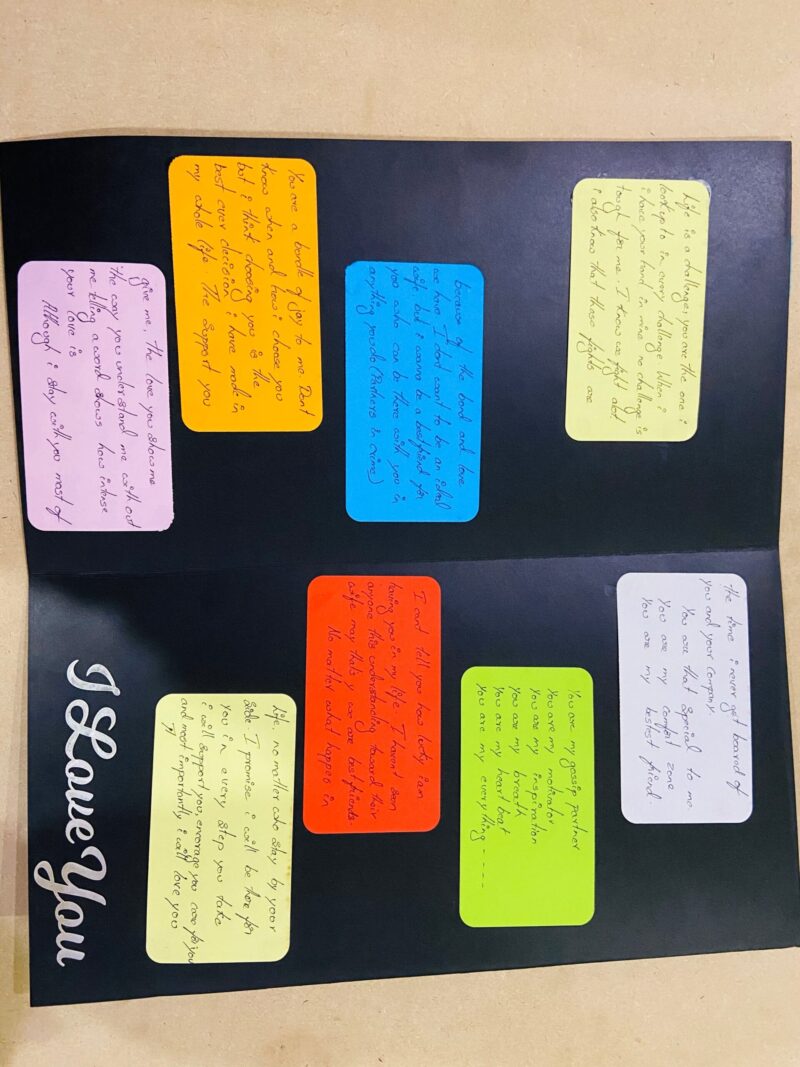 Life is a challenge, you are the one i
look up to in every challenge When i
i have your hand in mine no challenge is
tough for me. I know we fight alot
i also know that these fights are
because of the bond and love
we have I dont want to be an ideal
wife but i wanna be a bestfriend for
you who can be there with you in
anything you do (Partners in crime)
You are a bundle of joy to me. Dont
know when and how i choose you
but i think choosing you is the
best ever decision i have made in
my whole life. The support you
give me, the love you show me
the way you understand me with out
me telling a word shows how intense
your love is
Although i stay with you most of
the time i never get boared of
you and your company
You are that special to me.
You are my comfort zone
You are my bestest friend.
You are my gossip partner
You are my motivator
You are my inspiration
You are my breath
You are my heart beat
You are my everything - - - -
I cant tell you how lucky iam
having you in my life. I havent seen
anyone this understanding toward their
wife may thats y we are best friends.
No matter what happen in
life, no matter who stay by your
side I promise i will be there for
you in every step you take
i will support you, encorage you care for you
and most importantly i will love you
I Love You